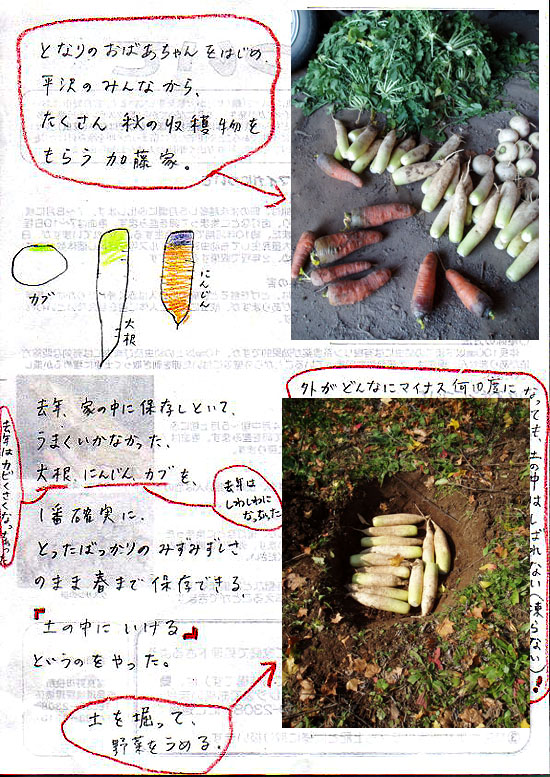 となりのおばあちゃんをはじめ、
平沢のみんなから、
たくさん 秋の収穫物を
もらう加藤家。
カブ
大根
にんじん
去年、家の中に保存しといて、
うまくいかなかった、
大根、にんじん、カブを、
去年はカビくさくなっちゃった
去年は
しわしわに
なっちゃった
1番確実に、
とったばっかりのみずみずしさ
のまま春まで保存できる
『土の中にいける』
というのをやった。
土を掘って、
野菜をうめる。
外がどんなにマイナス何10度に
なっても、土の中はしばれない(凍らない)!